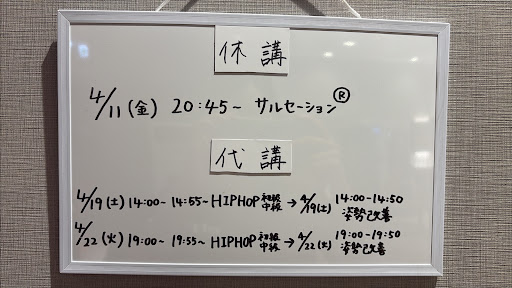 休講
4/11(金) 20:45~ サルセーション®
代講
4/19(土) 14:00~ 14:55~ HIPHOP 初級 中級 → 4/19(土) 14:00-14:50 姿勢改善
4/22(火) 19:00~ 19:55~ HIPHOP 初級 中級 → 4/22(火) 19:00-19:50 姿勢改善